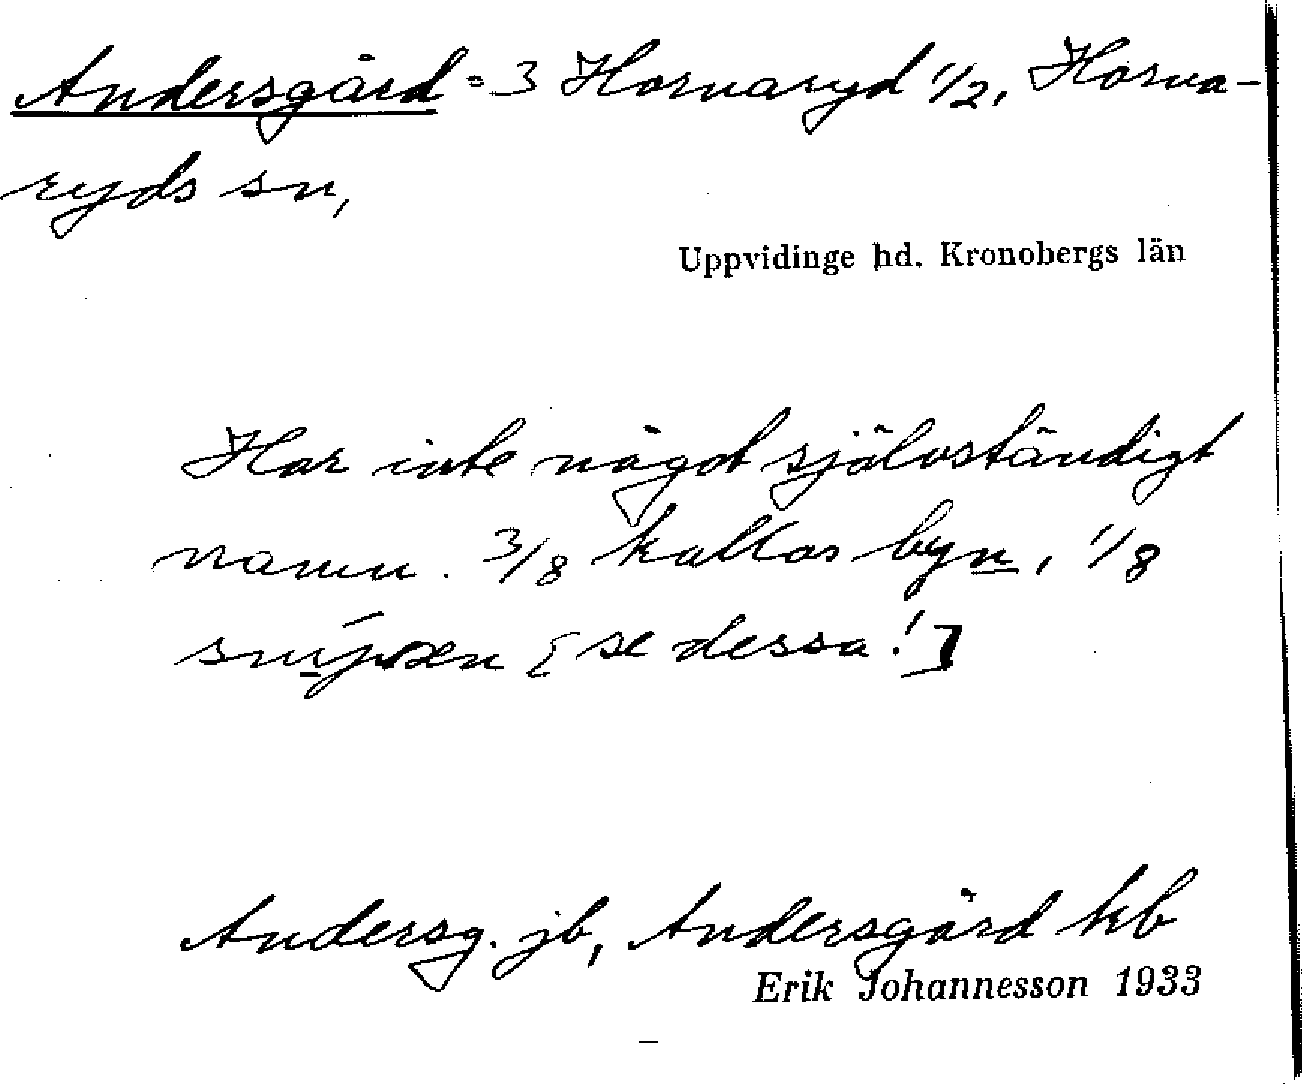 Andersgård = 3 Hornaryd 1/2, Horna-
ryds sn,
Uppvidinge hd. Kronobergs län
Har inte något självständigt
namn. 3/8 kallas byn, 1/8
[se dessa!]
Andersg. jb, Andersgård kb
Erik Johannesson 1933